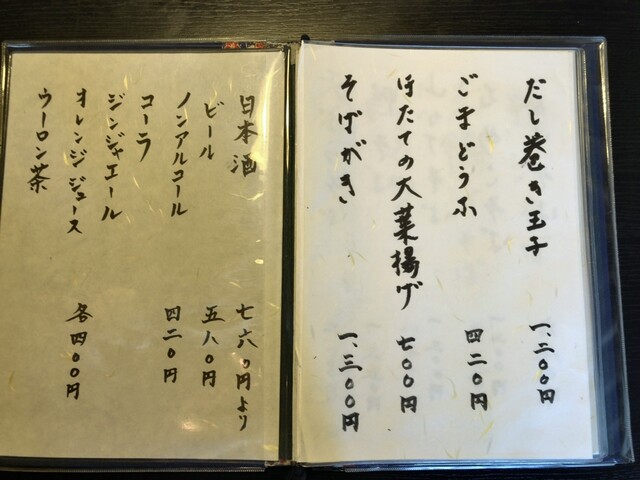 だし巻き玉子 一、二〇〇円
ごまどうふ 四二〇円
ほたての大葉揚げ 七〇〇円
そばがき 一、三〇〇円
日本酒 七六〇円より
ビール 五八〇円
ノンアルコール 四二〇円
コーラ
ジンジャエール
オレンジジュース 各四〇〇円
ウーロン茶